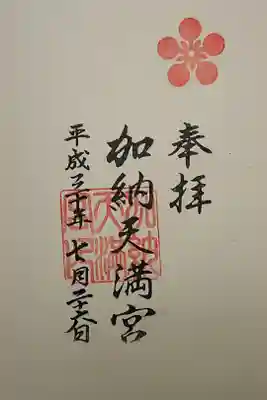 奉拝
加納天満宮
平成三十年 七月二十六日